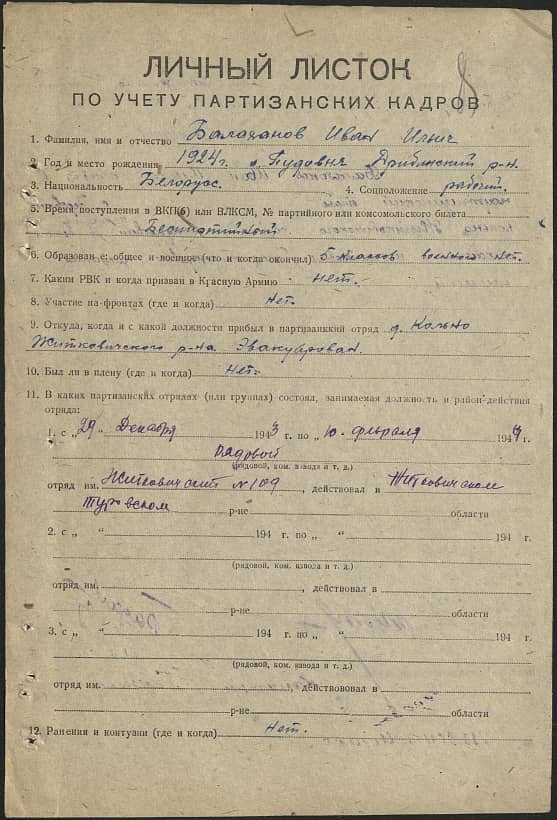 ЛИЧНЫЙ ЛИСТОК
ПО УЧЕТУ ПАРТИЗАНСКИХ КАДРОВ
1. Фамилия, имя и отчество Балаханов Иван Ильич
2. Год и место рождения 1924г. д. Пудовня Дрибинский р-н.
3. Национальность Белорус. 4. Соцположение рабочий.
5. Время поступления в ВКП(б) или ВЛКСМ, № партийного или комсомольского билета
Беспартийный
6. Образование: общее и военное (что и когда окончил) 5 классов военного нет.
7. Каким РВК и когда призван в Красную Армию нет.
8. Участие на фронтах (где и когда) Нет.
9. Откуда, когда и с какой должности прибыл в партизанккий отряд д. Кольно
Житковичского р-на. Эвакуирован.
10. Был ли в плену (где и когда) Нет.
11. В каких партизанских отрядах (или группах) состоял, занимаемая должность и район действия
отряда:
1. с „29 Декабря 1943 г. по „10. февраля 1944 г.
рядовой
(рядовой, ком. взвода и т. д.)
отряд им. Житковичский №109, действовал в Житковичском
Туровском р-не области
2. с „ “ 194 г. по „ “ 194 г.
(рядовой, ком. взвода и т. д.)
отряд им. , действовал в
р-не области
3. с „ “ 194 г. по „ “ 194 г.
(рядовой, ком. взвода и т. д.)
отряд им. , действововал в
р-не области
12. Ранения и контузии (где и когда) Нет.